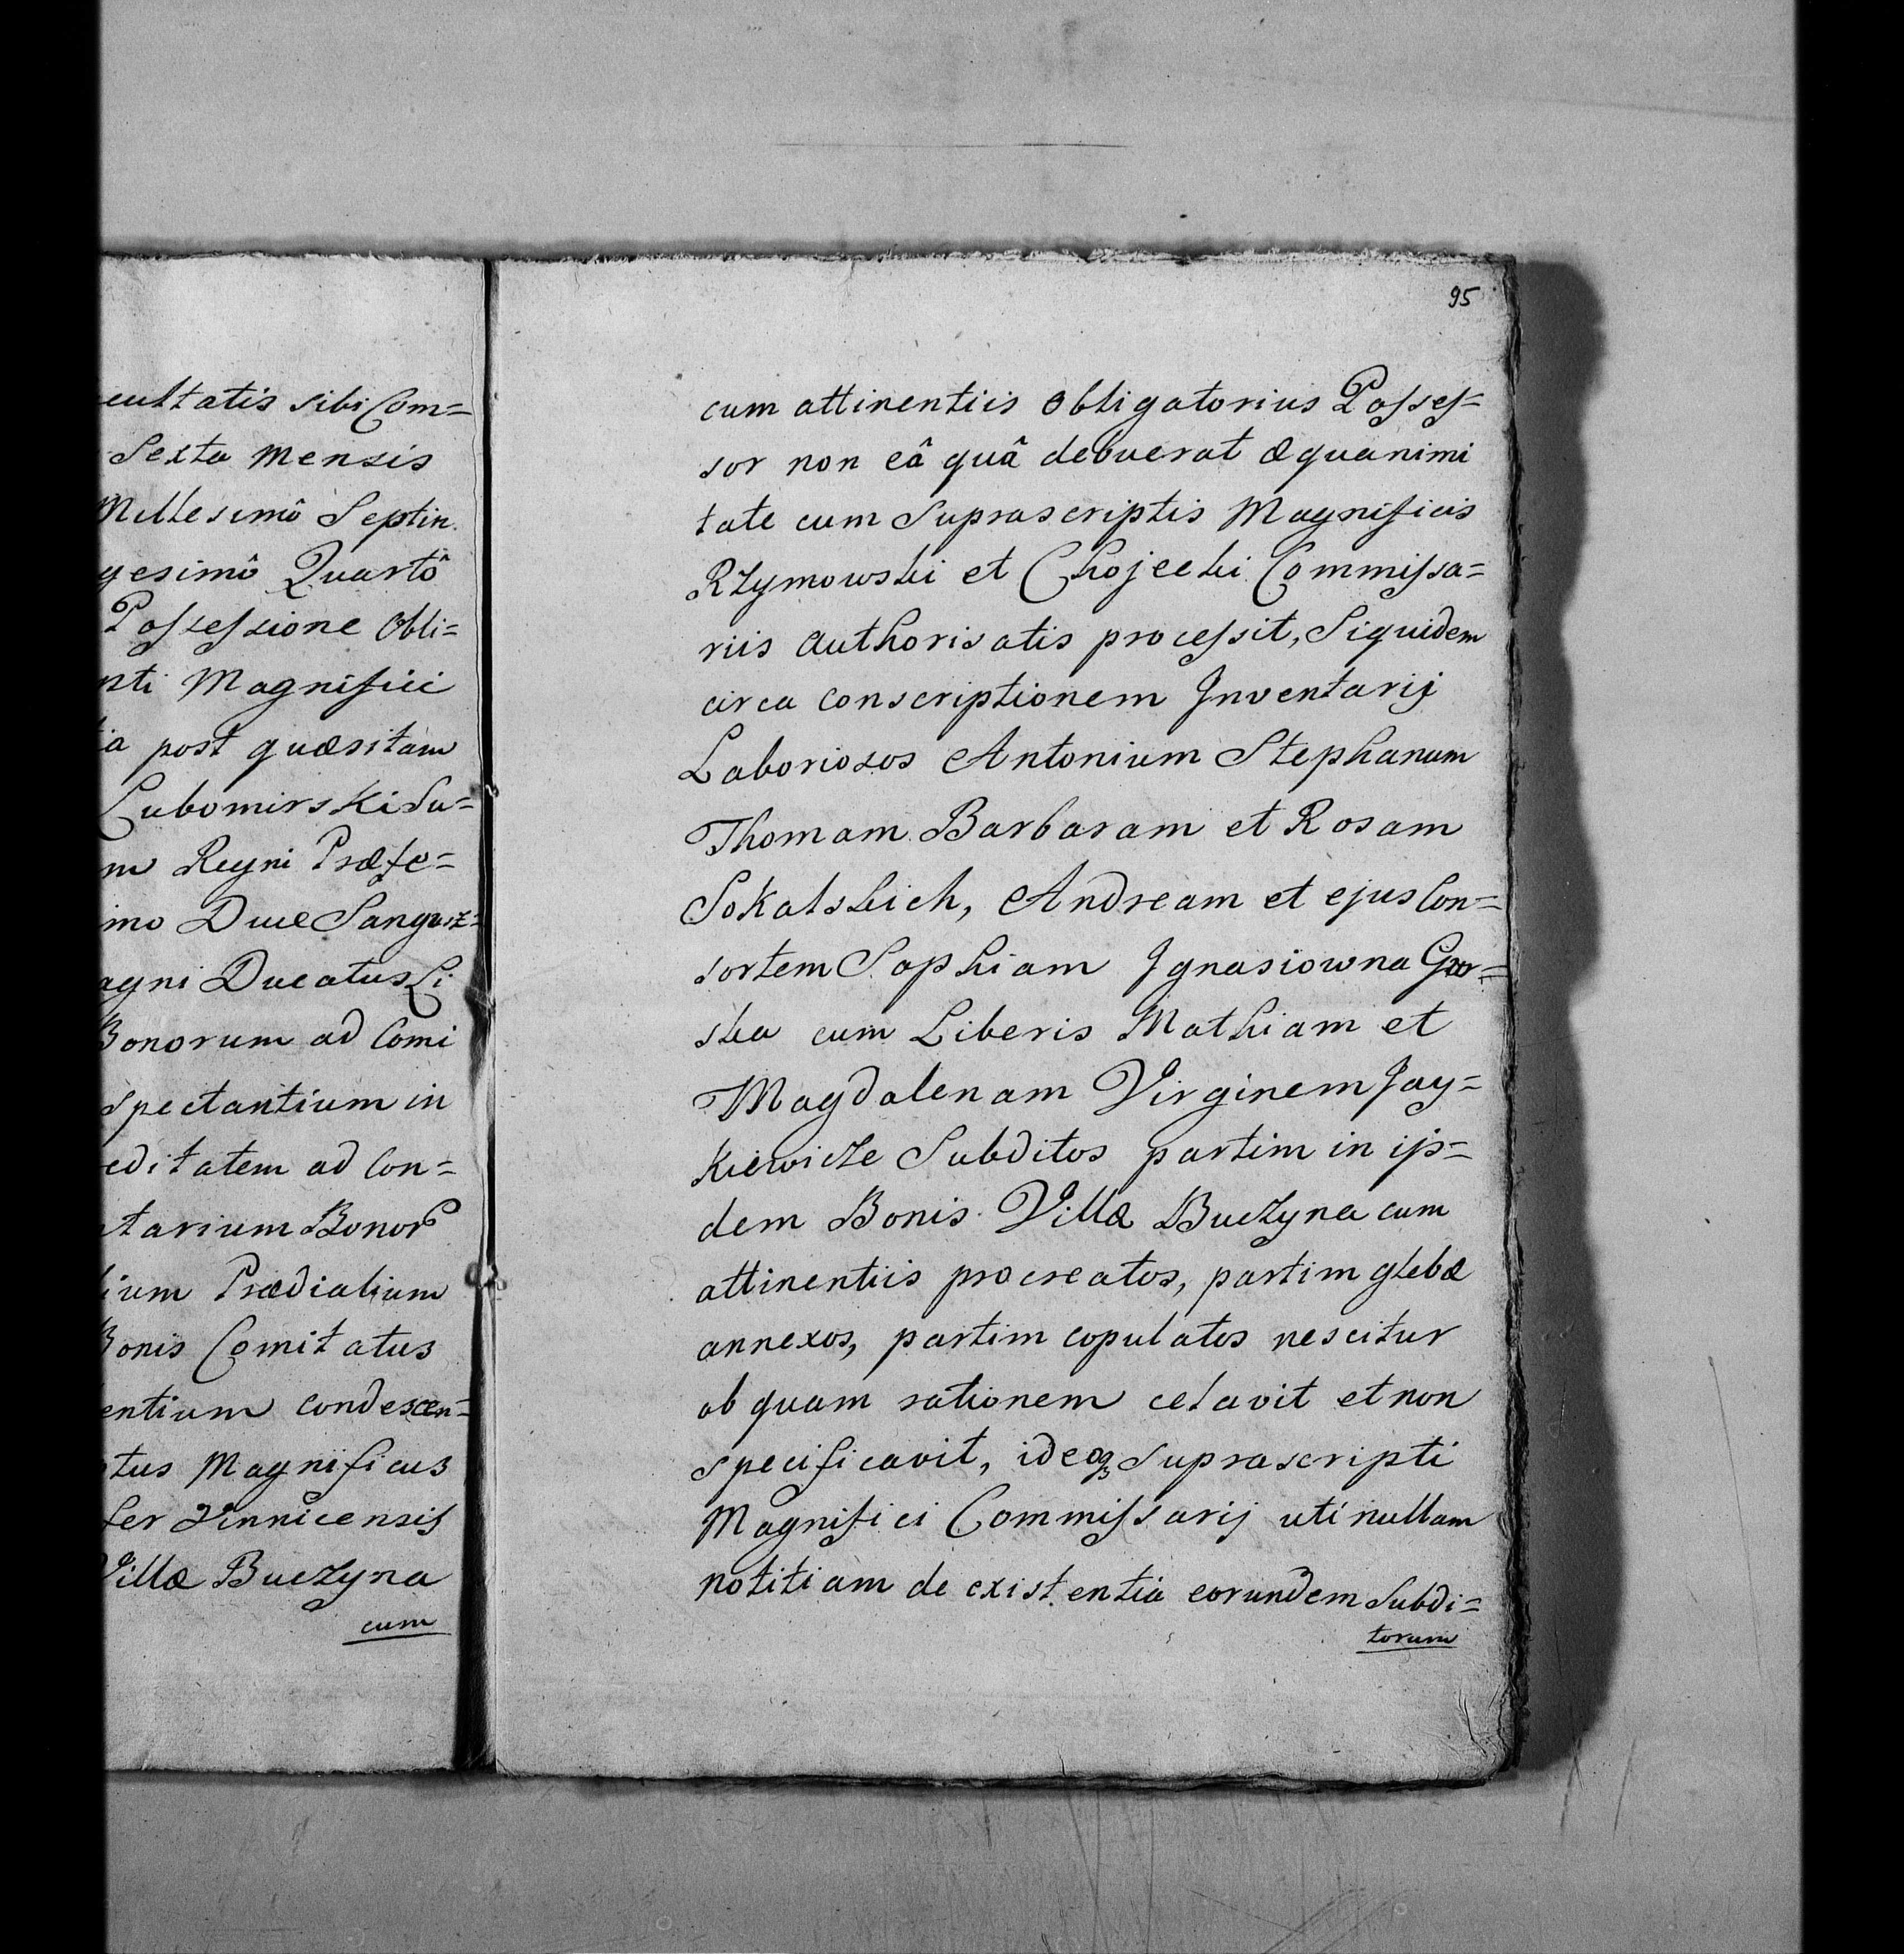 eultatis sibi Com=
Sexta Mensis
Millesimô Septin.
gesimô Quartô
Possessione Obli=
nti Magnifici
ia post quæsitam
Lubomirski Su=
m Regni Præfe=
imo Duce Sangusz=
agni Ducatus Li
Bonorum ad Comi
spectantium in
editatem ad Con=
ntarium Bonor
ium Prædialium
Bonis Comitatus
entium condescen=
tus Magnificus
fer Vinnicensis
Villæ Buczyna
cum
95
cum attinentiis Obligatorius Posses=
sor non eâ quâ debuerat æquanimi
tate cum Suprascriptis Magnificis
Rzymowski et Chojecki Commissa=
riis authorisatis processit, Siquidem
circa conscriptionem Inventarij
Laboriosos Antonium Stephanum
Thomam Barbaram et Rosam
Sokalskich, Andream et ejus Con=
sortem Sophiam Ignasiowna
ska cum Liberis Mathiam et
Magdalenam Virginem Jay=
kiewicze Subditos partim in ijs=
dem Bonis Villæ Buczyna cum
attinentiis procreatos, partim glebæ
annexos, partim copulatos nescitur
ob quam rationem celavit et non
specificavit, ideoq3 Suprascripti
Magnifici Commissarij uti nullam
notitiam de existentia eorundem Subdi=
torum